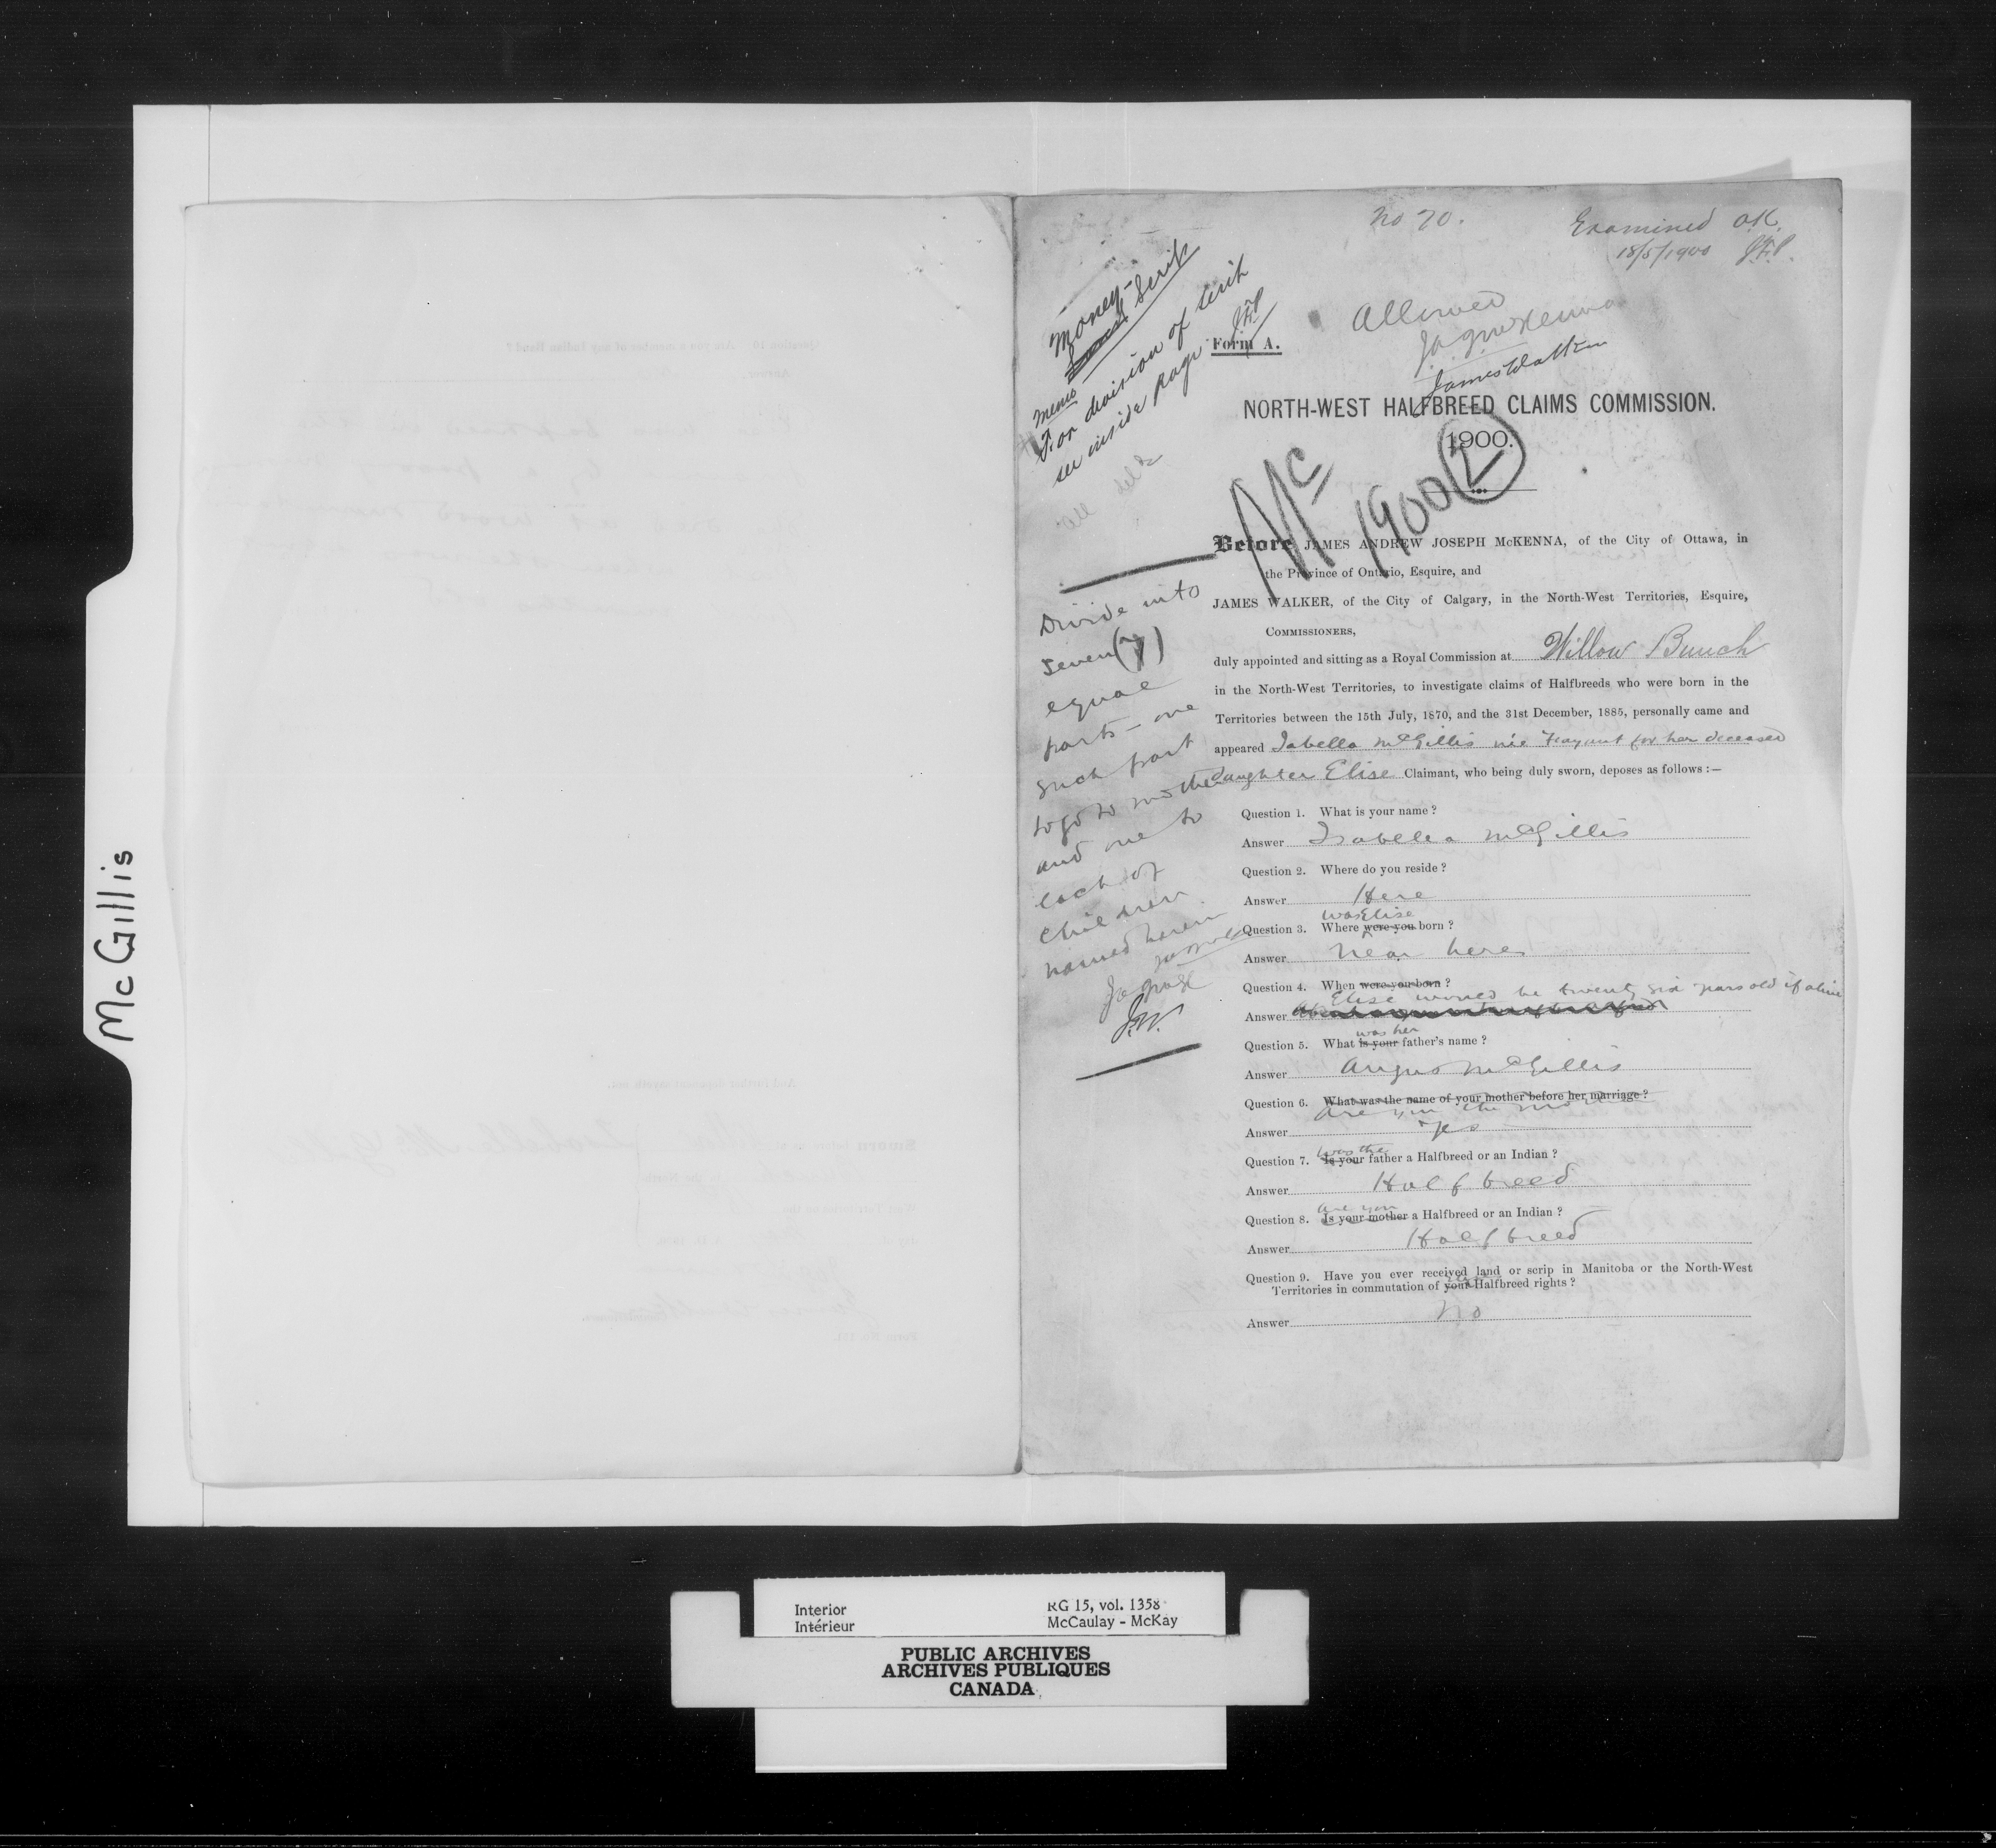 McGillis
No 70.
Examined OK.
18/5/1900 J.F.P.
Money
Scrip
memo
For division of scrip
see inside page J.F.P.
Allowed
James Walker
Form A.
NORTH-WEST HALFBREED CLAIMS COMMISSION.
1900.
Mc
1900 2
Before JAMES ANDREW JOSEPH McKENNA, of the City of Ottawa, in
the Province of Ontario, Esquire, and
JAMES WALKER, of the City of Calgary, in the North-West Territories, Esquire,
COMMISSIONERS,
duly appointed and sitting as a Royal Commission at Willow Bunch
in the North-West Territories, to investigate claims of Halfbreeds who were born in the
Territories between the 15th July, 1870, and the 31st December, 1885, personally came and
appeared Isabella McGillis née for her deceased
daughter Elise Claimant, who being duly sworn, deposes as follows :—
Divide into
seven (7)
equal
parts – one
such part
to go to mother
and one to
each of
children
named herein
J.W.
Question 1. What is your name ?
Answer Isabella McGillis
Question 2. Where do you reside ?
Answer Here
was Elise
Question 3. Where were you born ?
Answer Near here
Question 4. When were you born ?
Elise would be twenty six years old if alive
Answer
was her
Question 5. What is your father's name ?
Answer Angus McGillis
Question 6. What was the name of your mother before her marriage ?
Are you the mother
Answer Yes
was the
Question 7. Is your father a Halfbreed or an Indian ?
Answer Halfbreed
are you
Question 8. Is your mother a Halfbreed or an Indian ?
Answer Halfbreed
Question 9. Have you ever received land or scrip in Manitoba or the North-West
Territories in commutation of your Halfbreed rights ?
Answer No
Interior
Intérieur
RG 15, vol. 1358
McCaulay - McKay
PUBLIC ARCHIVES
ARCHIVES PUBLIQUES
CANADA